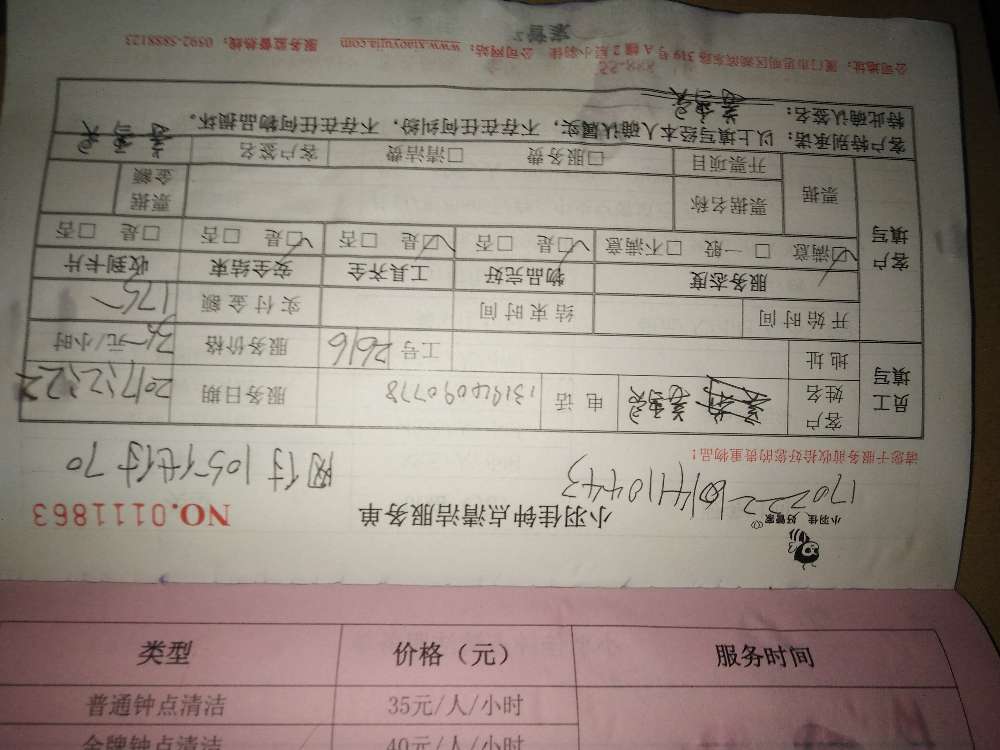 小羽佳 好管家
小羽佳钟点清洁服务单 NO.0111863
请您于服务前收拾好您的贵重物品！
网付105 代付70
员工填写 客户姓名 电话 13194090778 服务日期 2017.2.22
地址 工号 2616 服务价格 35元/小时
开始时间 结束时间 实付金额 175
客户填写 服务态度 物品完好 工具齐全 安全结束 收到卡片
☑满意 □一般 □不满意 ☑是 □否 ☑是 □否 ☑是 □否 □是 □否
票据 票据名称 票据金额
开票项目 □服务费 □清洁费 客户签名
客户特别承诺：以上填写经本人确认属实，不存在任何纠纷，不存在任何物品损坏。
特此确认签名：
公司地址：厦门市思明区湖滨东路319号A幢2层小羽佳 公司网站：www.xiaoyujia.com 服务监督热线：0592-5888123
类型 价格（元） 服务时间
普通钟点清洁 35元/人/小时
金牌钟点清洁 40元/人/小时